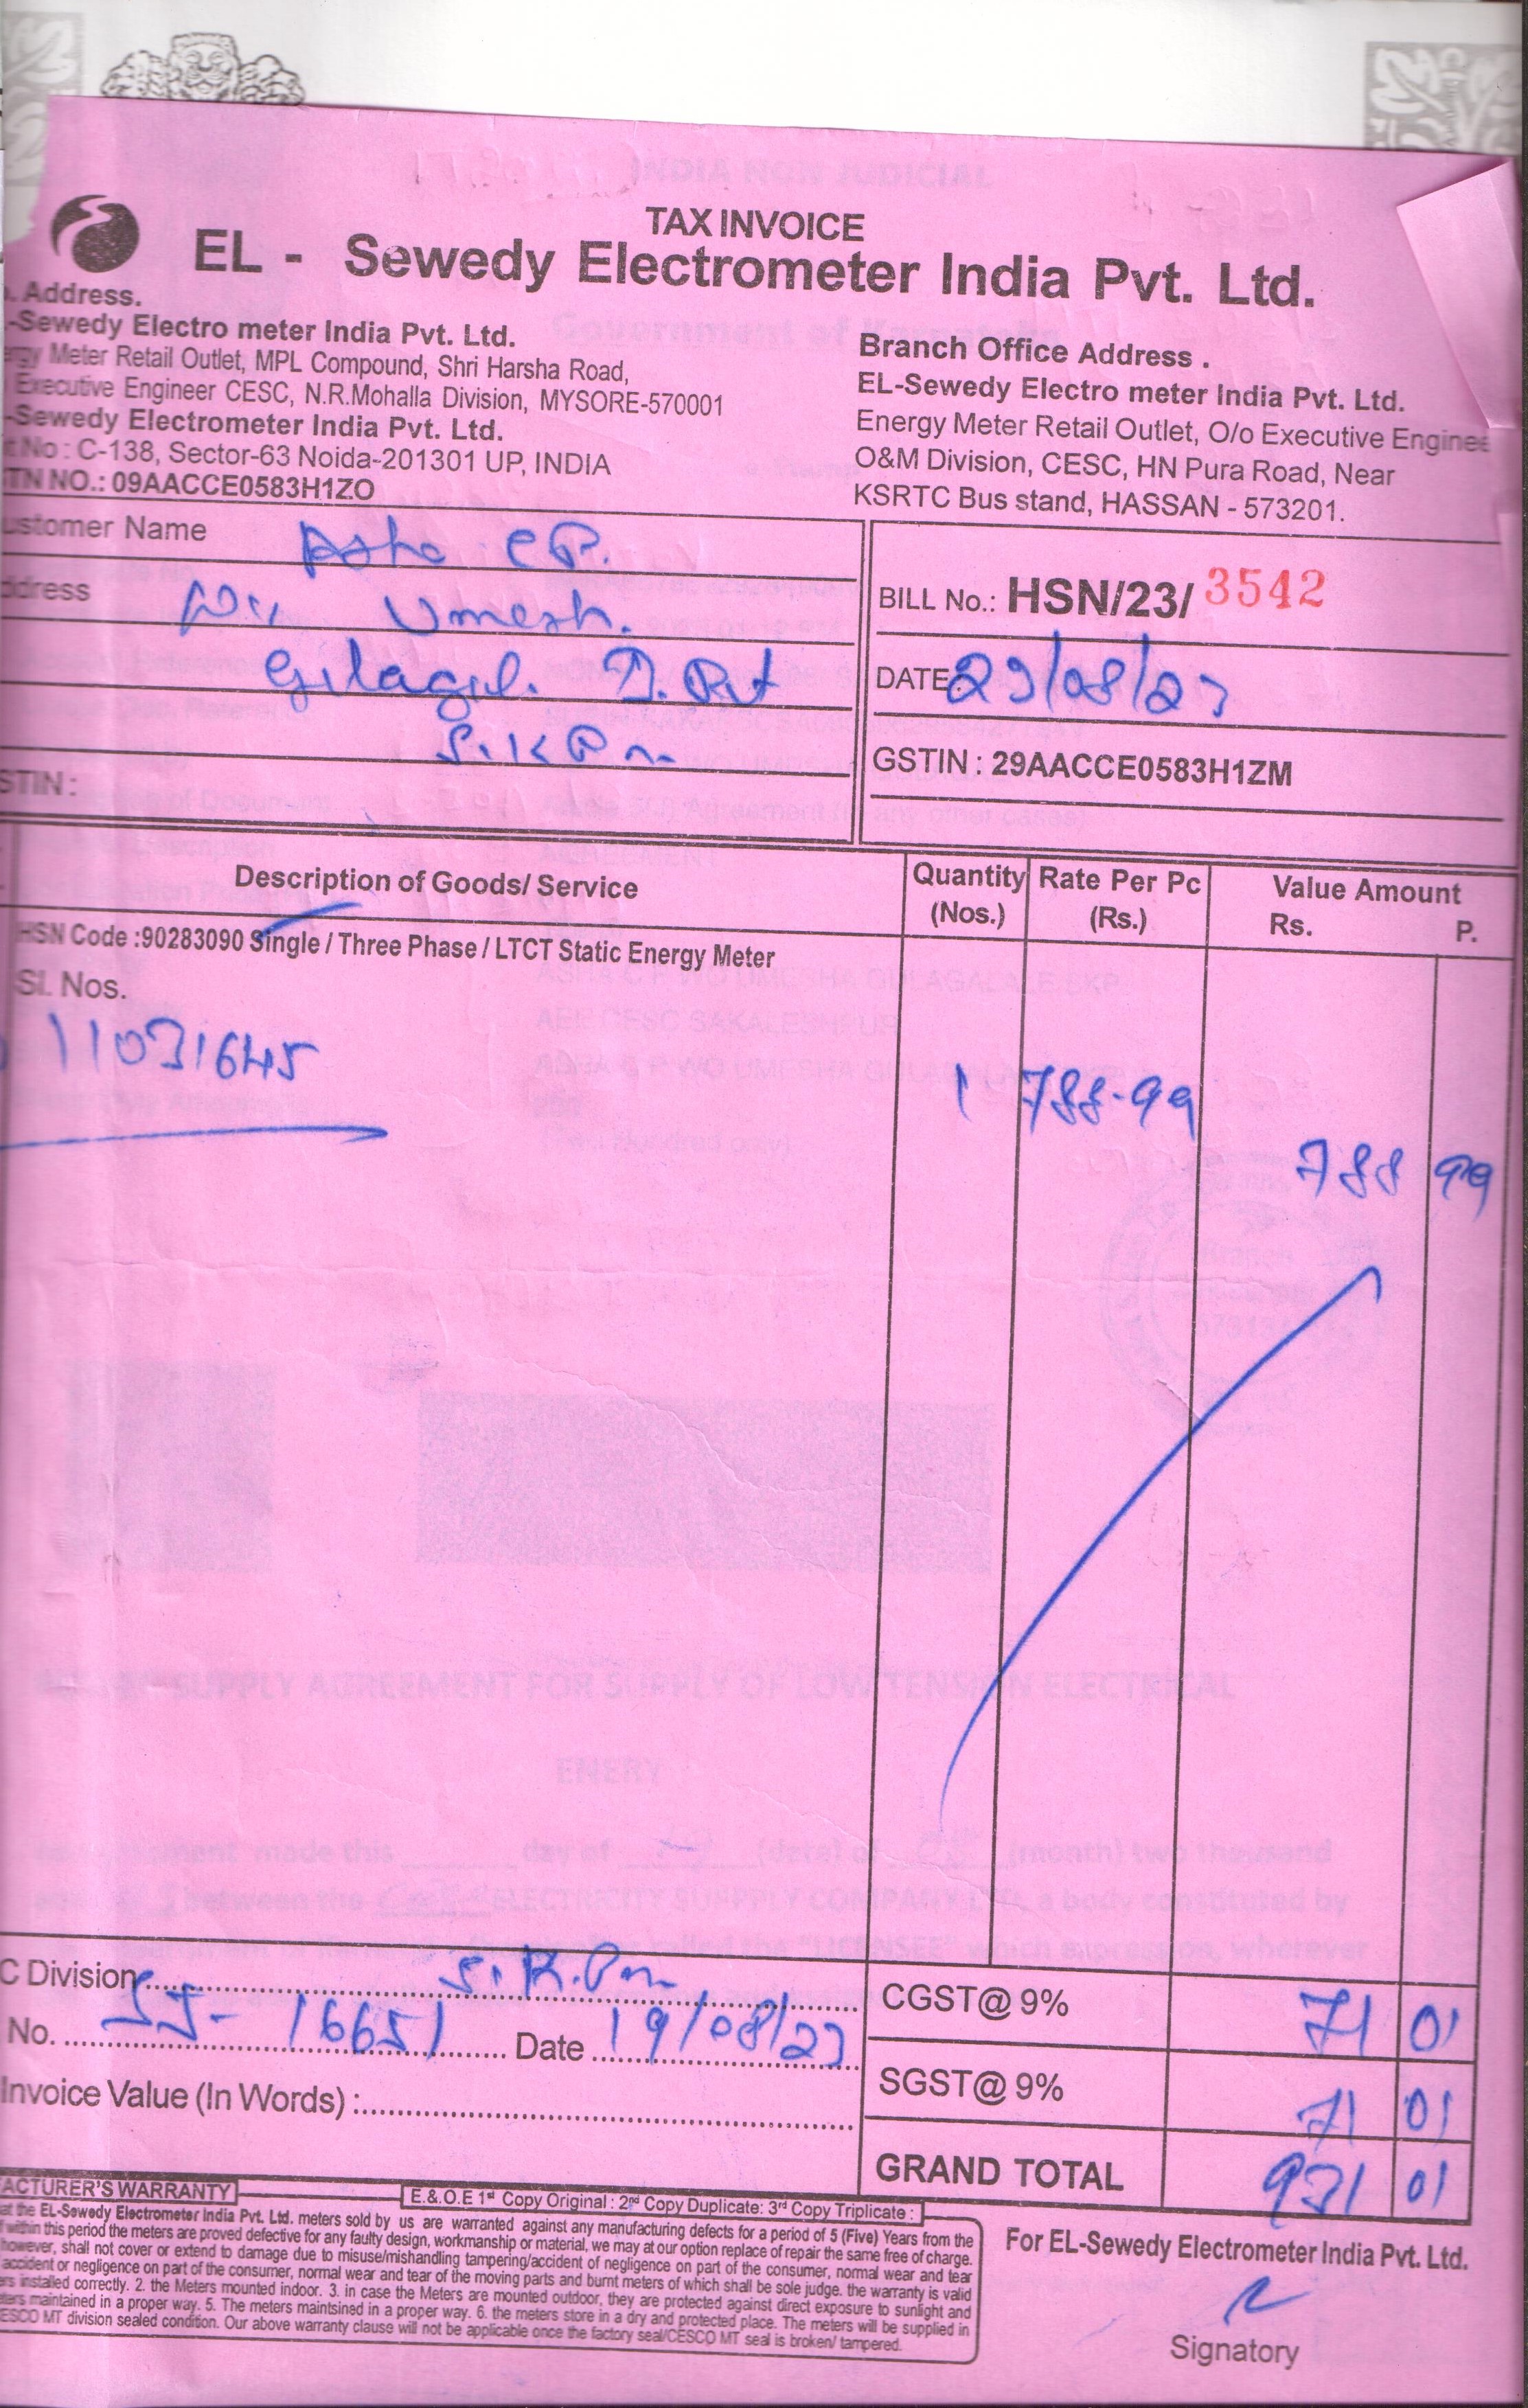 TAX INVOICE
EL - Sewedy Electrometer India Pvt. Ltd.
. Address.
-Sewedy Electro meter India Pvt. Ltd.
rgy Meter Retail Outlet, MPL Compound, Shri Harsha Road,
Executive Engineer CESC, N.R.Mohalla Division, MYSORE-570001
-Sewedy Electrometer India Pvt. Ltd.
t No : C-138, Sector-63 Noida-201301 UP, INDIA
TN NO.: 09AACCE0583H1ZO
Branch Office Address .
EL-Sewedy Electro meter India Pvt. Ltd.
Energy Meter Retail Outlet, O/o Executive Enginee
O&M Division, CESC, HN Pura Road, Near
KSRTC Bus stand, HASSAN - 573201.
ustomer Name Asha C P.
ddress Umesh.
S.K Pm
STIN :
BILL No.: HSN/23/ 3542
DATE: 23/08/23
GSTIN : 29AACCE0583H1ZM
Description of Goods/ Service Quantity (Nos.) Rate Per Pc (Rs.) Value Amount Rs. P.
HSN Code :90283090 Single / Three Phase / LTCT Static Energy Meter
Sl. Nos.
11031645
1 788.99
788 99
C Division S.K.Pm
No. SJ- 16651 Date 19/08/23
Invoice Value (In Words) :
CGST@ 9% 71 01
SGST@ 9% 71 01
GRAND TOTAL 931 01
ACTURER'S WARRANTY
E.& O.E 1st Copy Original : 2nd Copy Duplicate: 3rd Copy Triplicate :
at the EL-Sewedy Electrometer India Pvt. Ltd. meters sold by us are warranted against any manufacturing defects for a period of 5 (Five) Years from the
within this period the meters are proved defective for any faulty design, workmanship or material, we may at our option replace of repair the same free of charge.
however, shall not cover or extend to damage due to misuse/mishandling tampering/accident of negligence on part of the consumer, normal wear and tear
accident or negligence on part of the consumer, normal wear and tear of the moving parts and burnt meters of which shall be sole judge. the warranty is valid
ers installed correctly. 2. the Meters mounted indoor. 3. in case the Meters are mounted outdoor, they are protected against direct exposure to sunlight and
ters maintained in a proper way. 5. The meters maintsined in a proper way. 6. the meters store in a dry and protected place. The meters will be supplied in
ESCO MT division sealed condition. Our above warranty clause will not be applicable once the factory seal/CESCO MT seal is broken/ tampered.
For EL-Sewedy Electrometer India Pvt. Ltd.
Signatory